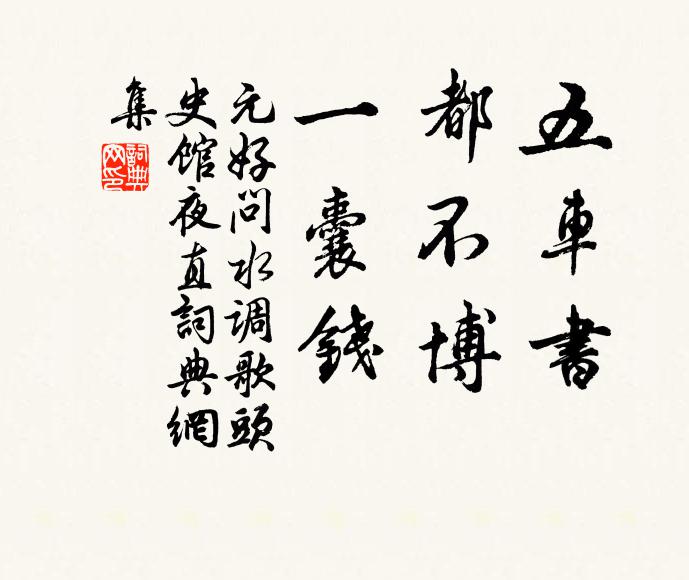 五車書
都不博
一囊錢
元好問水调歌頭
史館夜直詞典網
集
詞典網印